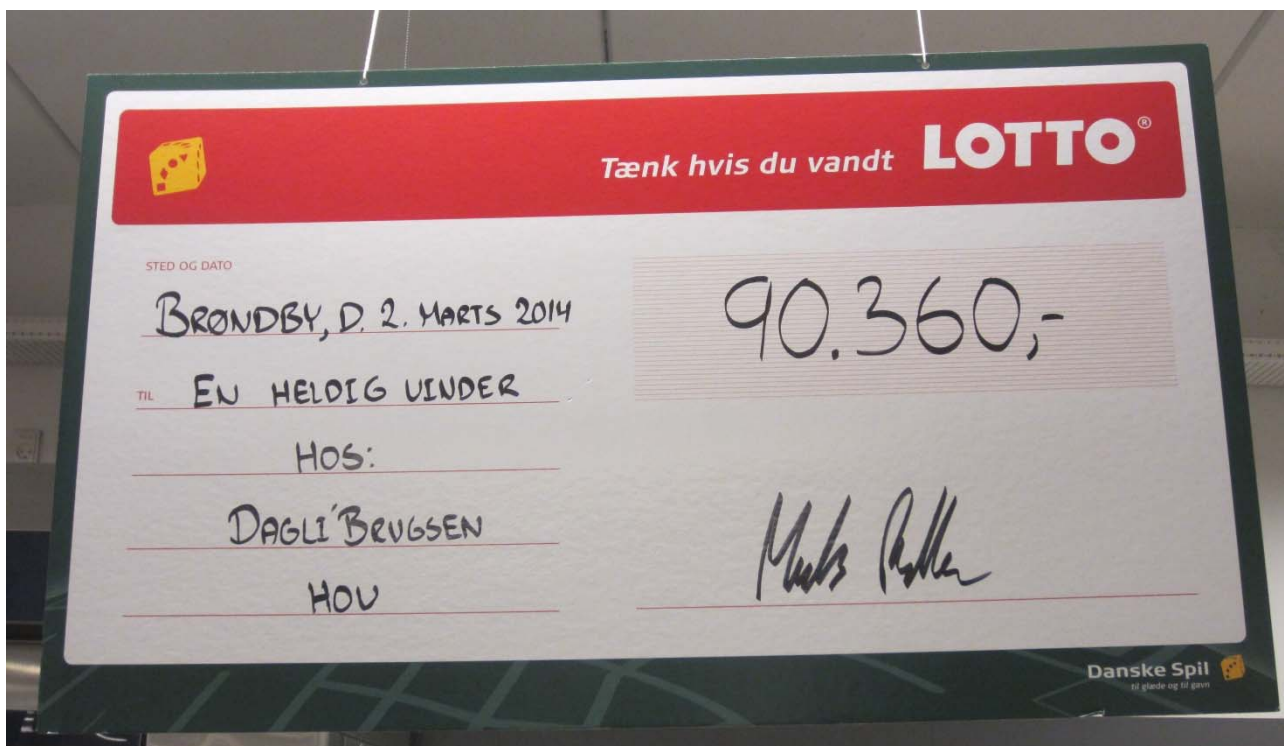 Tænk hvis du vandt LOTTO®
STED OG DATO
BRØNDBY, D. 2. MARTS 2014
90.360,-
TIL EN HELDIG VINDER
HOS:
DAGLI'BRUGSEN
HOV
Danske Spil
til glæde og til gavn